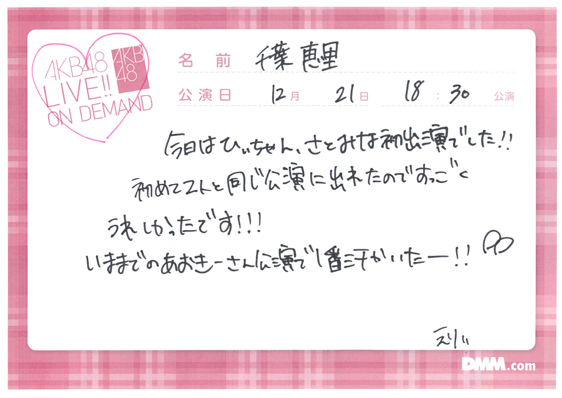 AKB48
LIVE!!
ON DEMAND
AKB
48
名前 千葉恵里
公演日 12月 21日 18:30 公演
今日はひぃちゃん、さとみな初出演でした!!
初めて2人と同じ公演に出れたのですっごく
うれしかったです!!!
いままでのあおきーさん公演で1番汗かいたー!!
えりぃ
DMM.com